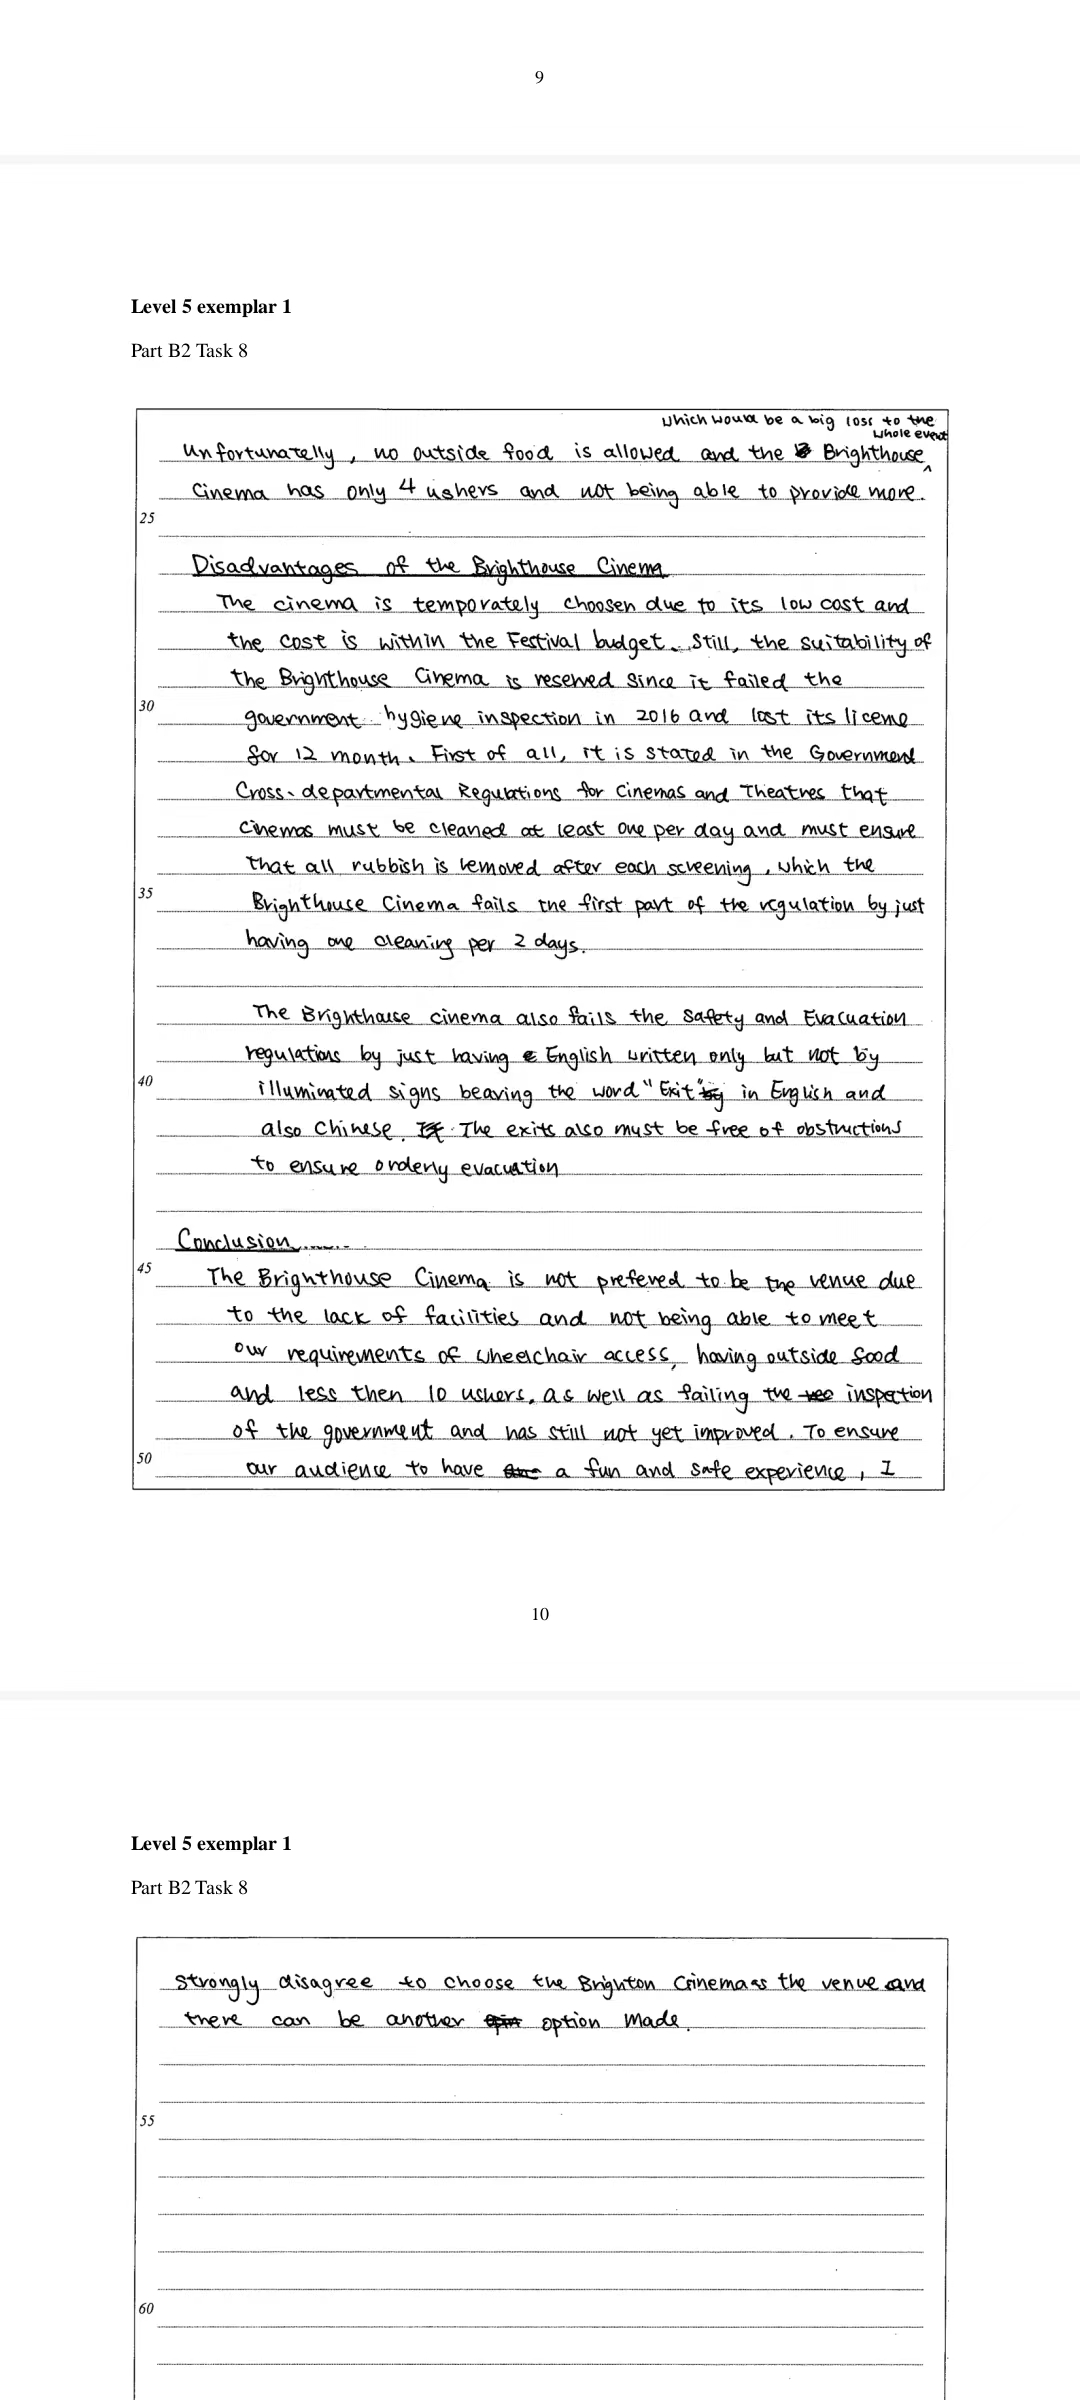 9
Level 5 exemplar 1
Part B2 Task 8
which would be a big loss to the
whole event
Unfortunatelly, no outside food is allowed and the Brighthouse ^
Cinema has only 4 ushers and not being able to provide more.
25
Disadvantages of the Brighthouse Cinema
The cinema is temporately choosen due to its low cost and
the cost is within the Festival budget. Still, the suitability of
the Brighthouse Cinema is reserved since it failed the
30
government hygiene inspection in 2016 and lost its license
for 12 month. First of all, it is stated in the Government
Cross-departmental Regulations for Cinemas and Theatres that
Cinemas must be cleaned at least one per day and must ensure
that all rubbish is removed after each screening, which the
35
Brighthouse Cinema fails the first part of the regulation by just
having one cleaning per 2 days.
The Brighthouse cinema also fails the Safety and Evacuation
regulations by just having English written only but not by
40
illuminated signs bearing the word "Exit" in English and
also Chinese. The exits also must be free of obstructions
to ensure orderly evacuation
Conclusion
45
The Brighthouse Cinema is not prefered to be the venue due
to the lack of facilities and not being able to meet
our requirements of wheelchair access, having outside food
and less then 10 ushers, as well as failing the inspection
of the government and has still not yet improved. To ensure
50
our audience to have a fun and safe experience, I
10
Level 5 exemplar 1
Part B2 Task 8
strongly disagree to choose the Brighton Cinema as the venue and
there can be another option made.
55
60